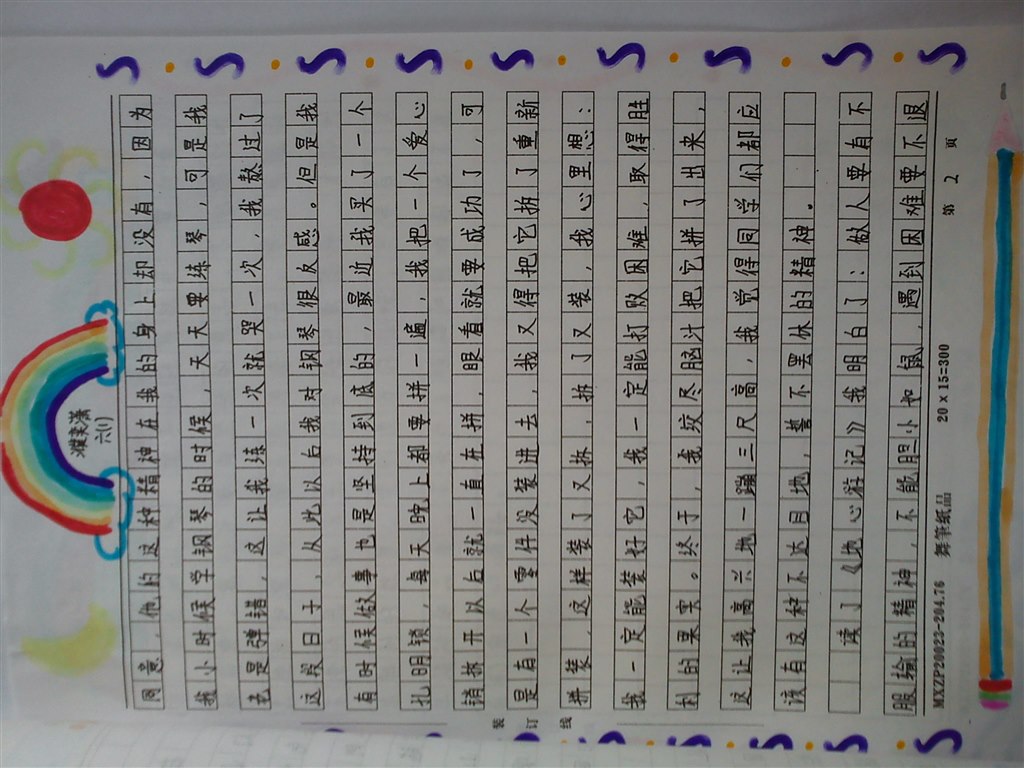 六(1)
网意，他的这种精神在我的身上却没有，因为
我小时候学钢琴的时候，天天要练琴，可是我
老是弹错，这让我练一次就哭一次，我熬过了
这段日子，从此以后我对钢琴很反感。但是我
有时候做事也是坚持到底的，最近我买了一个
扎明锁，每天晚上都要拼一遍，我把一个爱心
锁拆开以后就一直在拼，眼看就要成功了，可
是有一个重件没装进去，我又得把它拆了重新
拼装，这样装了又拆，拆了又装，我心里想：
我一定能装好它，我一定能打败困难，取得胜
利的果实。终于，我绞尽脑汁把它拼了出来，
这让我高兴地一蹦三尺高，我觉得同学们都应
该有这种不达目地，誓不罢休的精神。
读了《地心游记》我明白了：做人要有不
服输的精神，不能胆小如鼠，遇到困难要不退
MXZP20023-204.76 舞筆纸品 20×15=300 第 2 页
装 订 线